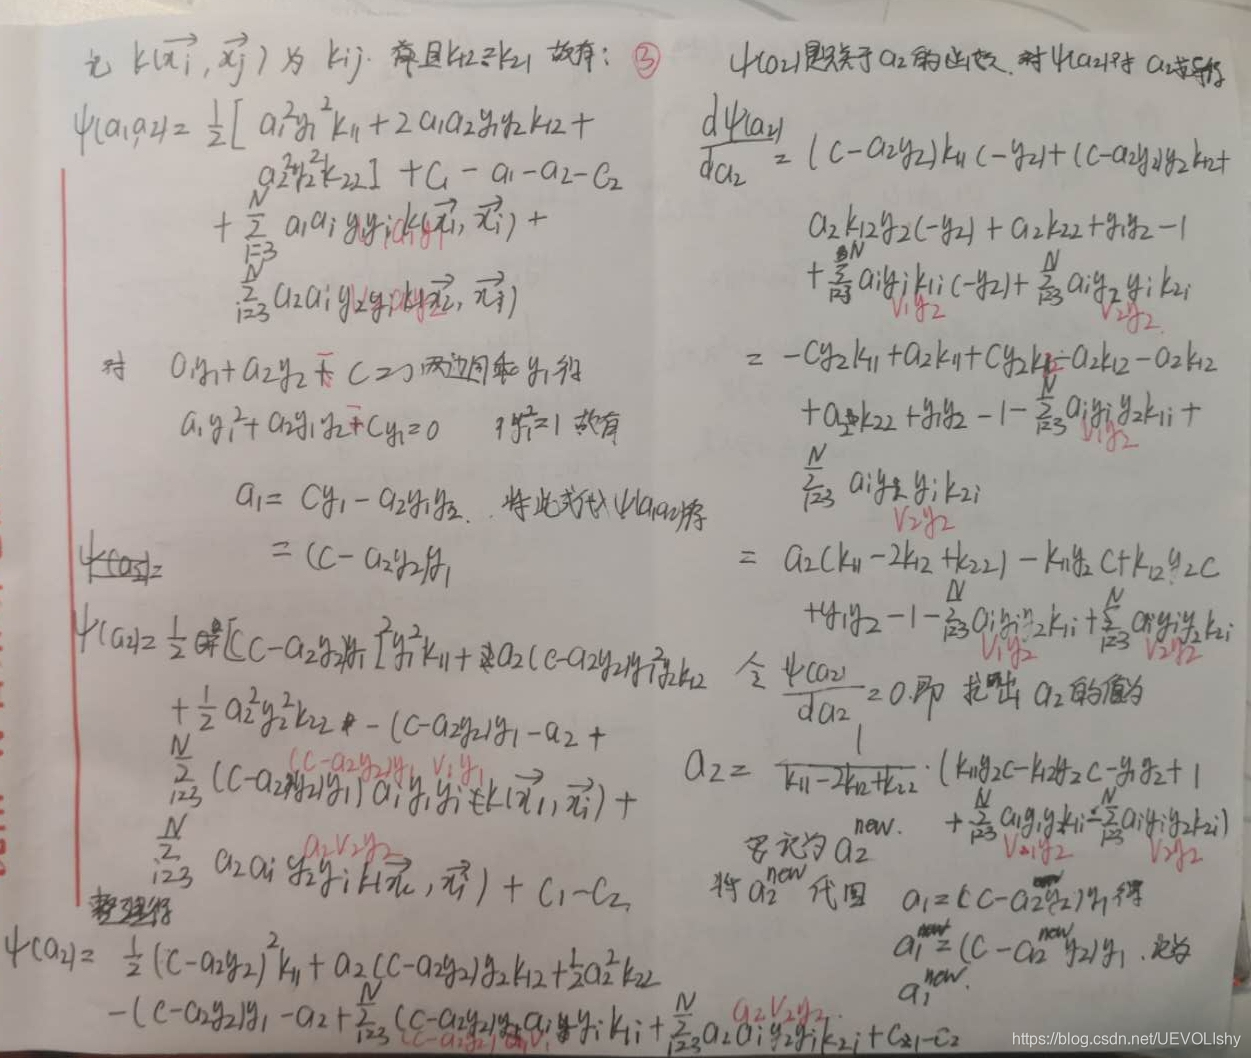 记 k(x⃗i, x⃗j) 为 kij. 并且k12=k21 故有: ③
ψ(a1,a2) = 1/2 [ a1²y1²k11 + 2a1a2y1y2k12 +
a2²y2²k22] + C1 - a1 - a2 - C2
+ Σ(i=3→N) a1ai y1yi k(x⃗1, x⃗i) +
Σ(i=3→N) a2ai y2yi k(x⃗2, x⃗i)
对 a1y1 + a2y2 - C = 0 两边同乘 y1 得
a1y1² + a2y1y2 - Cy1 = 0 y1²=1 故有
a1 = Cy1 - a2y1y2. 将此式代入ψ(a1a2)得
= (C - a2y2)y1
ψ(a2)=
ψ(a2) = 1/2 [(C-a2y2)y1]²y1²k11 + a2(C-a2y2)y1²y2k12
+ 1/2 a2²y2²k22 - (C-a2y2)y1 - a2 +
(C-a2y2)y1 V1y1
Σ(i=3→N) (C-a2y2)y1) ai y1yi k(x⃗1, x⃗i) +
a2V2y2
Σ(i=3→N) a2ai y2yi k(x⃗2, x⃗i) + C1-C2,
整理得
ψ(a2) = 1/2 (C-a2y2)²k11 + a2(C-a2y2)y2k12 + 1/2a2²k22
a2V2y2.
-(C-a2y2)y1 - a2 + Σ(i=3→N) (C-a2y2) ai yi k1i + Σ(i=3→N) a2aiy2yik2i + C1-C2
(C-a2y2) V1
ψ(a2)是只关于a2的函数, 对ψ(a2)对 a2求导得
dψ(a2)/da2 = (C-a2y2)k11(-y2) + (C-a2y2)y2k12 +
a2k12y2(-y2) + a2k22 + y1y2 - 1
+ Σ(i=3→N) aiyik1i(-y2) + Σ(i=3→N) aiy2yik2i
V1y2 V2y2
= -Cy2k11 + a2k11 + Cy2k12 - a2k12 - a2k12
+ a2k22 + y1y2 - 1 - Σ(i=3→N) aiyiy2k1i +
V1y2
Σ(i=3→N) aiy2yik2i
V2y2
= a2(k11 - 2k12 + k22) - k11y2C + k12y2C
+ y1y2 - 1 - Σ(i=3→N) aiyiy2k1i + Σ(i=3→N) aiyiy2k2i
V1y2 V2y2
令 ψ(a2)/da2 = 0. 即 找出 a2的值为
a2 = 1/(k11-2k12+k22) · (k11y2C - k12y2C - y1y2 + 1
+ Σ(i=3→N) aiyiy2k1i - Σ(i=3→N) aiyiy2k2i)
V1y2 V2y2
记为 a2^new.
将 a2^new 代回 a1 = (C-a2y2)y1得
a1^new = (C - a2^new y2)y1. 记为
a1^new.
https://blog.csdn.net/UEVOLIshy